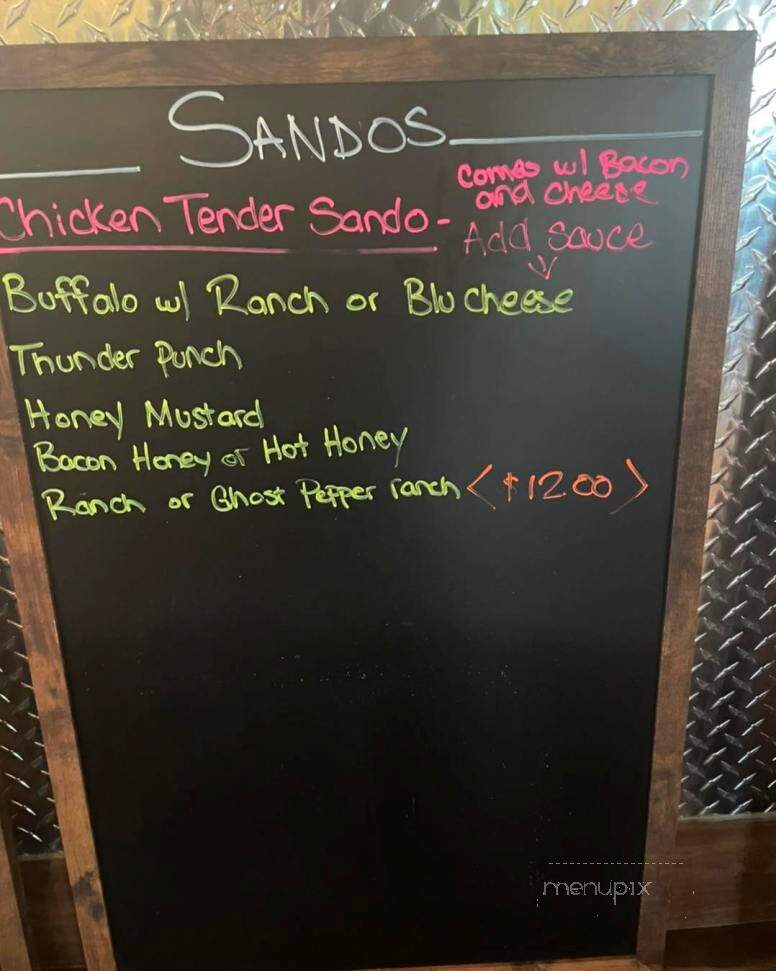 SANDOS
Chicken Tender Sando - Comes w/ Bacon and cheese
Add sauce
Buffalo w/ Ranch or Blu cheese
Thunder Punch
Honey Mustard
Bacon Honey or Hot Honey
Ranch or Ghost Pepper ranch <$12.00>
menupix